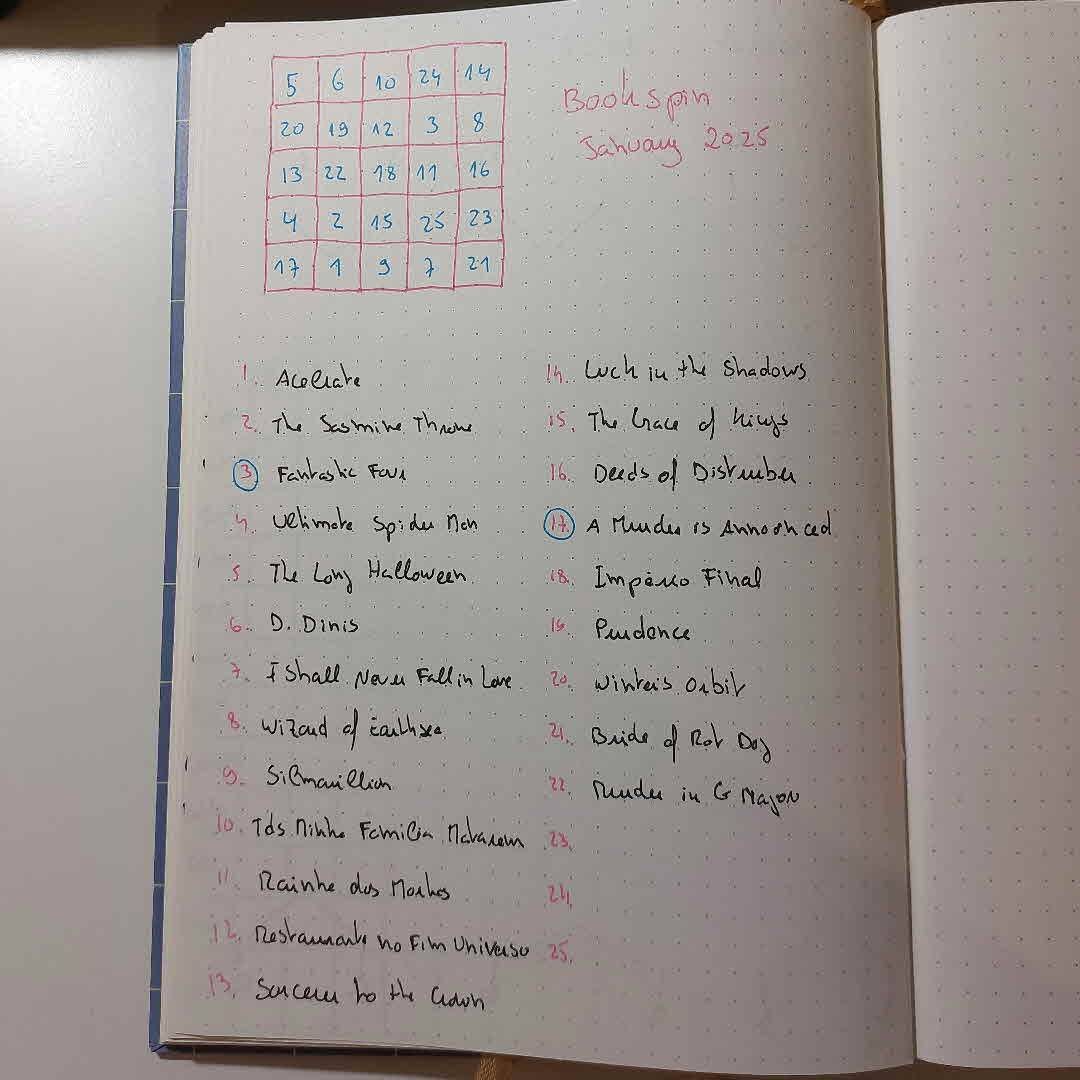 5 6 10 24 14
20 19 12 3 8
13 22 18 11 16
4 2 15 25 23
17 1 9 7 21
Bookspin
January 2025
1. Acelerate
2. The Jasmine Throne
3 Fantastic Four
4. Ultimate Spider Man
5. The Long Halloween
6. D. Dinis
7. I Shall Never Fall in Love
8. Wizard of Earthsea
9. Silmarillion
10. Tds Minha Familia Mataram
11. Rainha dos Mortos
12. Restaurante no Fim Universo
13. Sorcerer to the Crown
14. Luck in the Shadows
15. The Grace of Kings
16. Deeds of Disturber
17. A Murder is Announced
18. Império Final
19. Prudence
20. Winter's Orbit
21. Bride of Rat Dog
22. Murder in G Major
23.
24.
25.